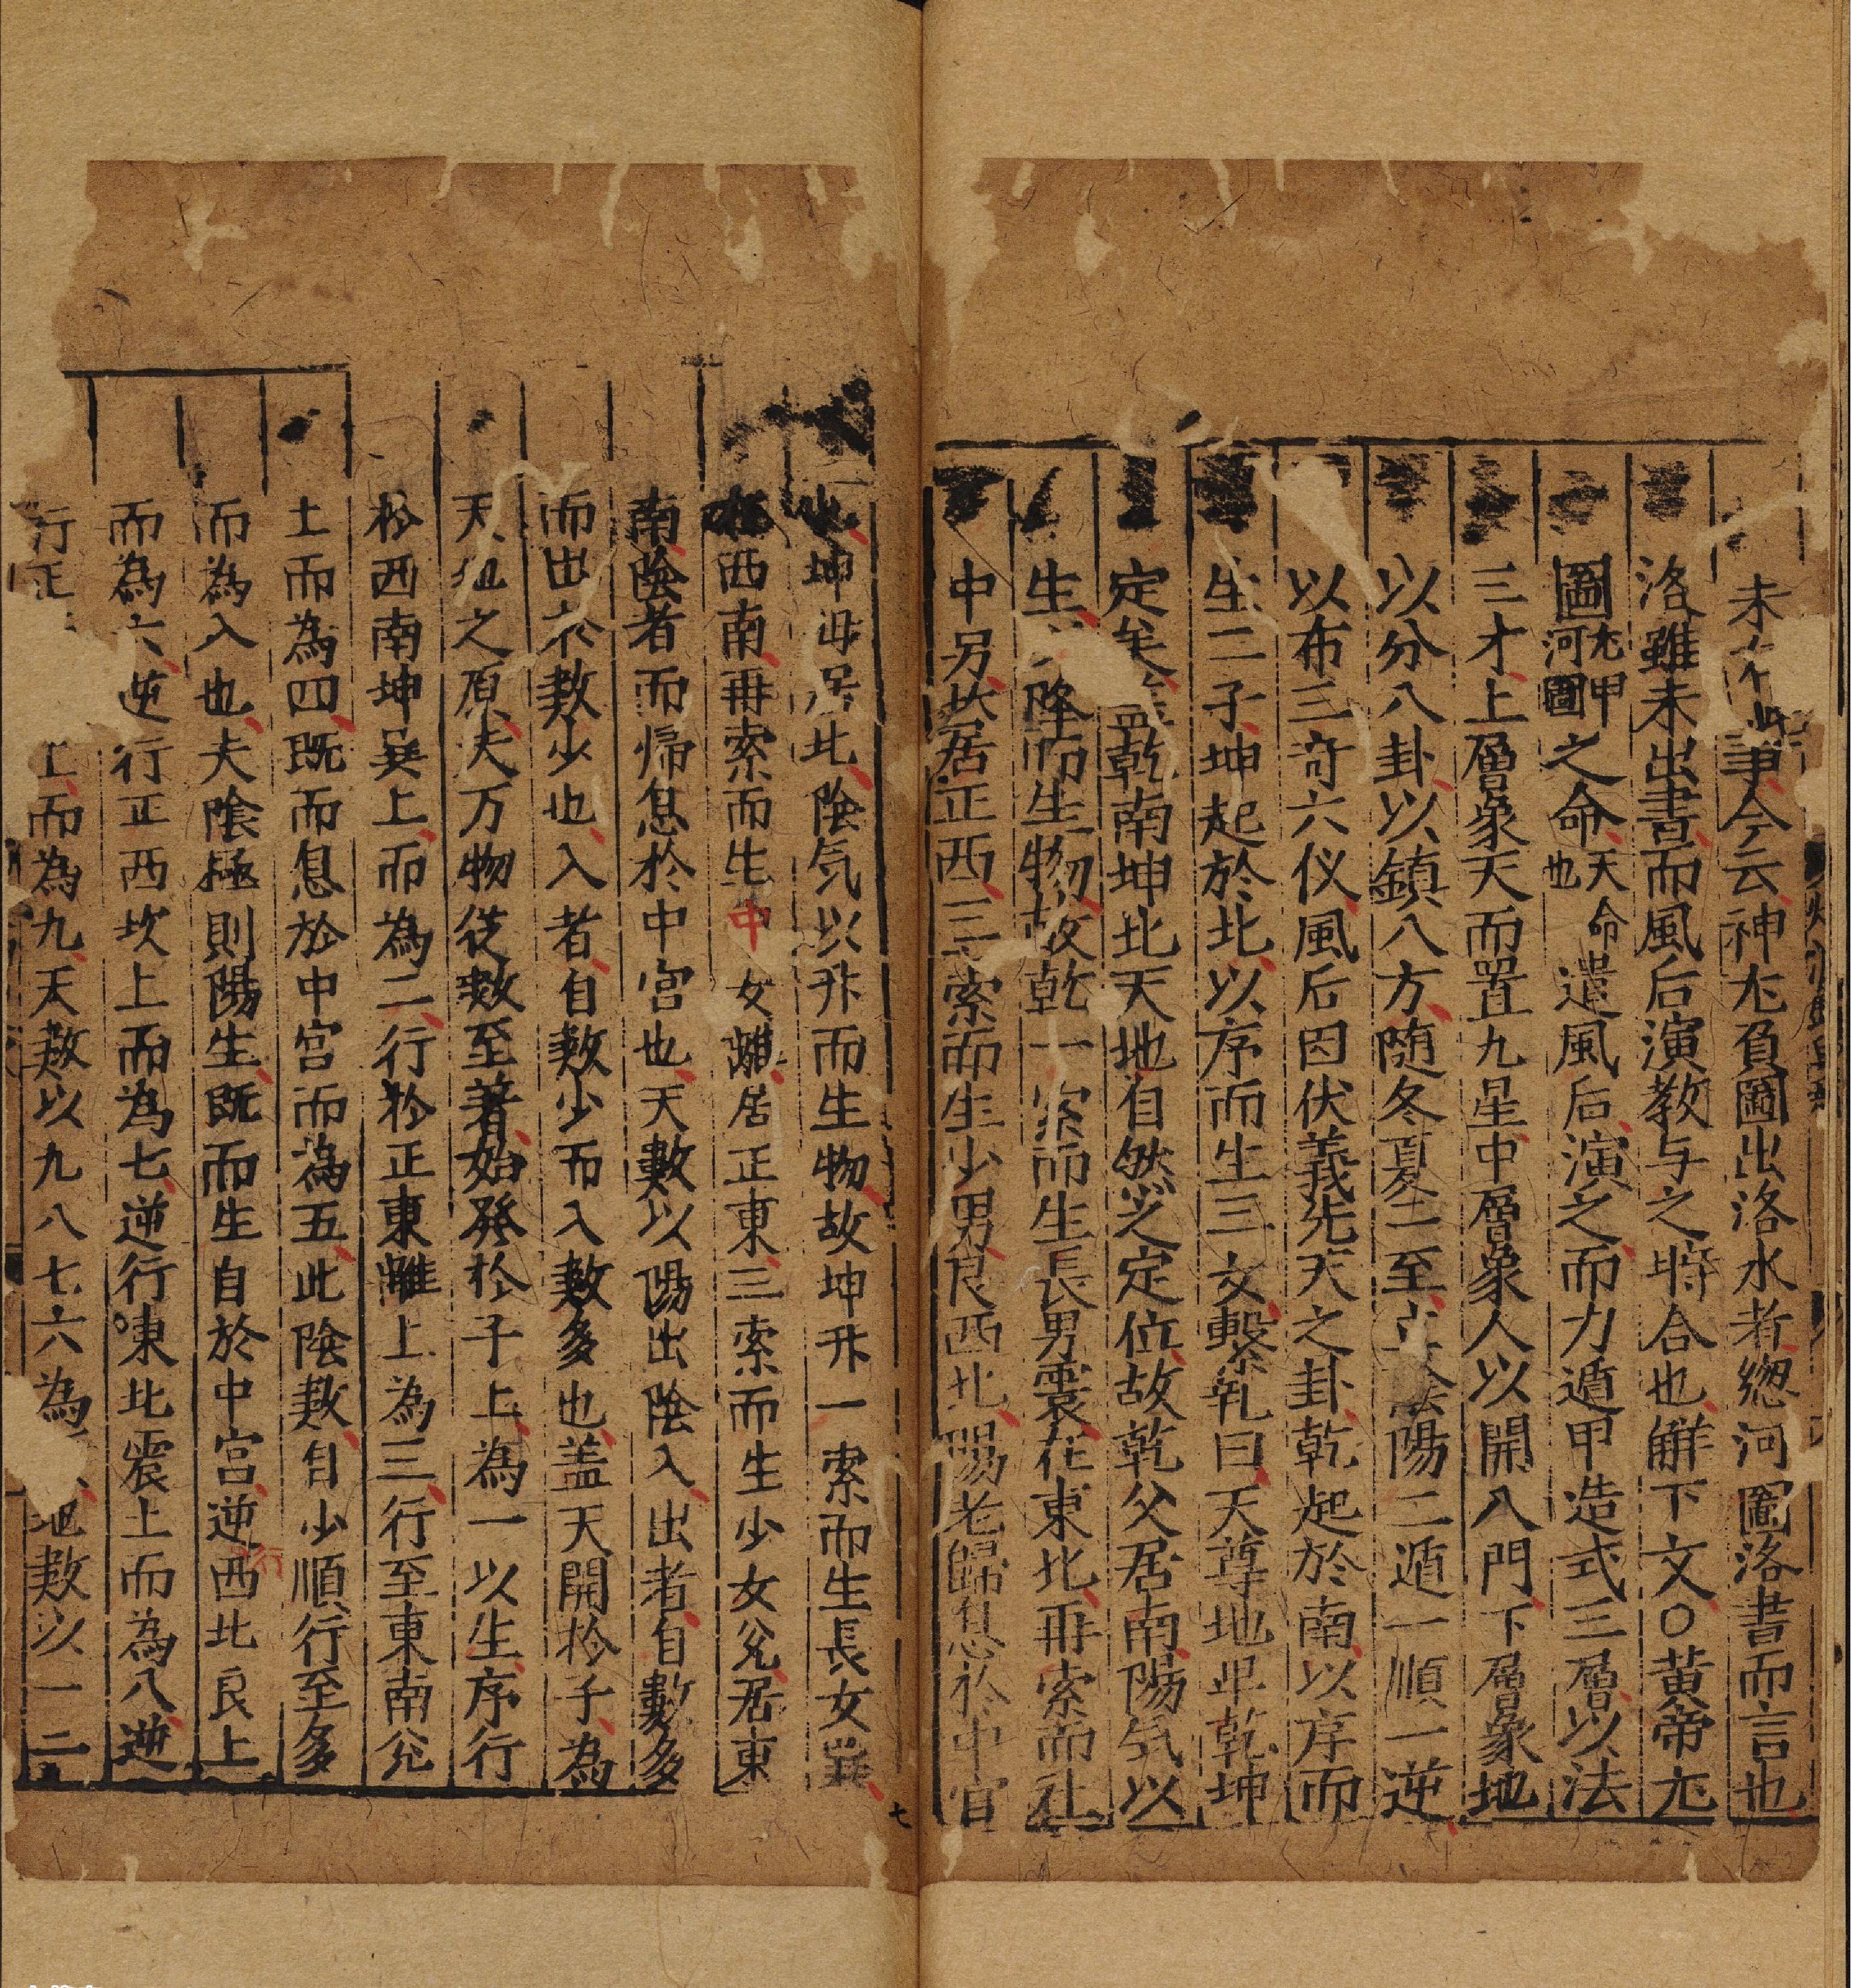 未有此事今云神龙負圖出洛水者緫河圖洛書而言也
洛雖未出書而風后演教与之時合也解下文○黄帝龙
圖龙甲河圖之命天命也遣風后演之而力遁甲造式三層以法
三才上層象天而置九星中層象人以開八門下層象地
以分八卦以鎮八方随冬夏二至立陰陽二遁一順一逆
以布三竒六仪風后因伏義先天之卦乾起於南以序而
生二子坤起於北以序而生三文繫乳曰天尊地卑乾坤
定矣盖乾南坤北天地自然之定位故乾父居南陽気以
生降而生物故乾一索而生長男震在東北再索而
中男故居正西三索而生少男艮西北陽老歸息於中宮
坤毋居北陰気以升而生物故坤升一索而生長女巽
西南再索而生中女離居正東三索而生少女兌居東
南陰者而帰息於中宮也天數以陽出陰入出者自數多
而出於数少也入者自数少而入數多也盖天開於子為
天地之原夫万物従数至著始發於子上為一以生序行
於西南坤巽上而為二行於正東離上為三行至東南兊
土而為四既而息於中宮而為五此陰数自少順行至多
而為入也夫陰極則陽生既而生自於中宮逆行西北艮上
而為六逆行正西坎上而為七逆行東北震上而為八逆
行正上而為九天数以九八七六為地数以一二
七